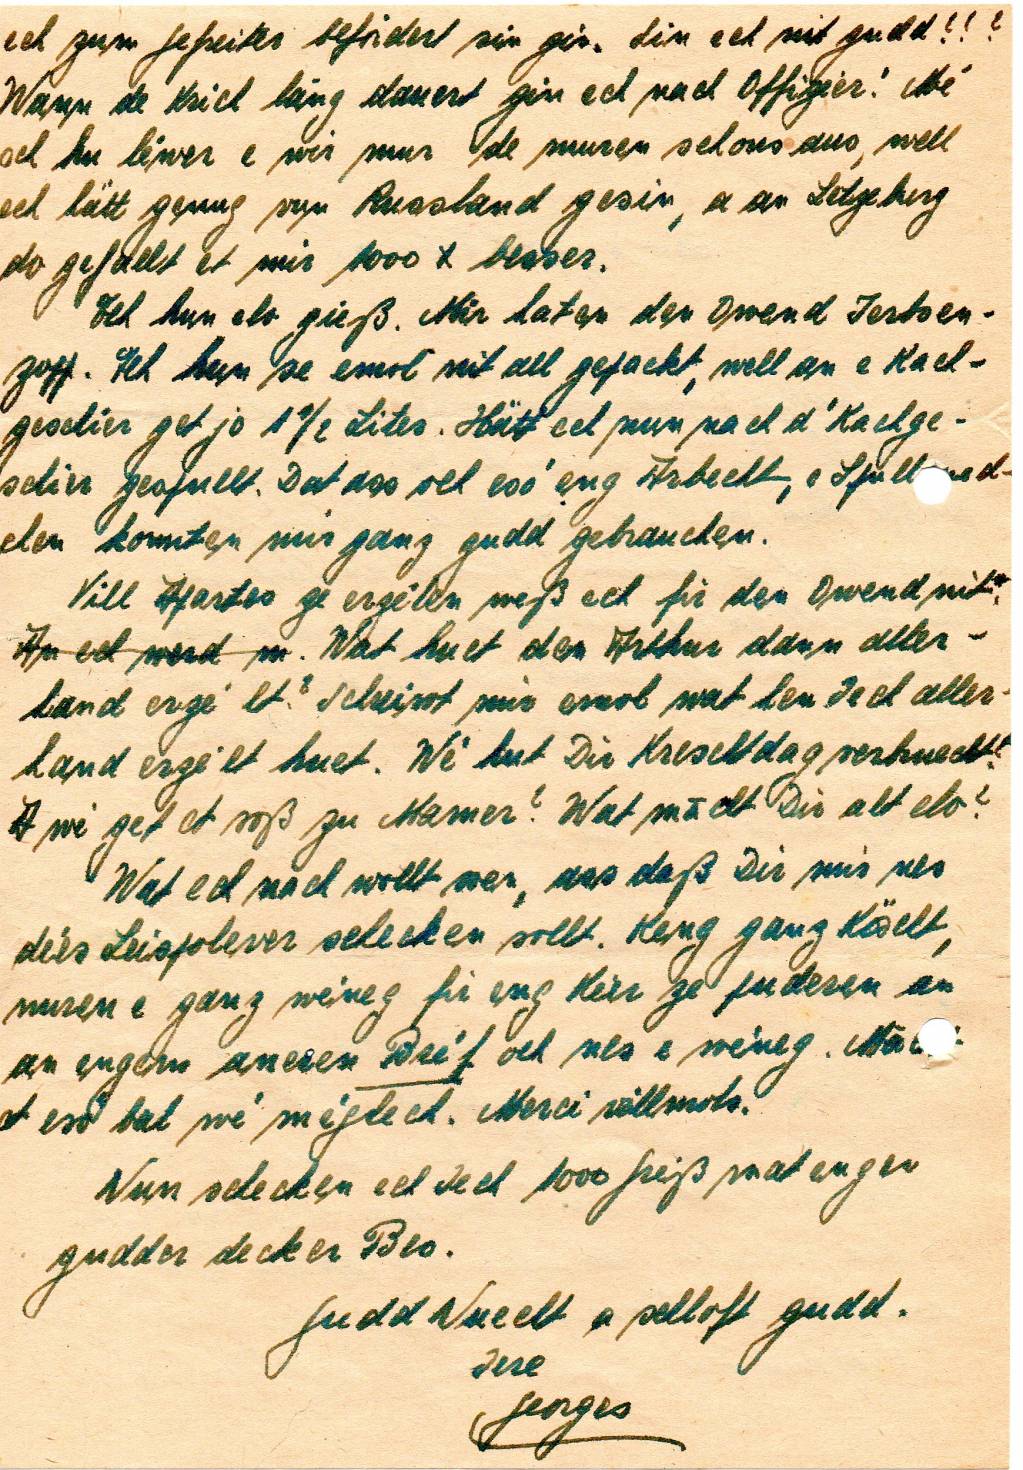 ech zum Gefreiter befördert sin gin. Sin ech nit gudd!!?
Wann de Krich läng dauert gin ech nach Offizier! Mé
ech hu léwer e wir mur de muren schons aus, well
ech hätt genug vun Russland gesin, a an Lëtzeburg
do gefaellt et mir 1000 X besser.
Ech hun elo gieß. Mir haten den Owend Ierbsen-
zopp. Ech hun se emol nit all gepackt, well an e Kach-
geschier get jo 1 1/2 Liter. Hätt ech nun nach d'Kachge-
schier gespullt. Dat ass och esó eng Arbecht, e Spull
chen konnten mir ganz gudd gebrauchen.
Vill Apartes ze erzélen weß ech fir den Owend nit.
An ech werd m. Wat huet den Arthur dann aller-
hand erzé lt? Schreiwt mir emol wat hen Iech aller-
hand erzé lt huet. Wé hut Dir Kreschtdag verbruecht?
A wé get et soß zu Mamer? Wat mācht Dir alt elo?
Wat ech nach wollt son, ass daß Dir mir nes
déi Leispolever schecken sollt. Keng ganz Këscht,
nuren e ganz wéineg fir eng Kéier ze puderen an
an engem aneren Bréf och nes e wéineg.
et esó bal wé méglech. Merci villmols.
Nun schecken ech Iech 1000 Gréiß mat enger
gudder decker Bes.
Gudd Nuecht a schloft gudd.
Iere
Georges